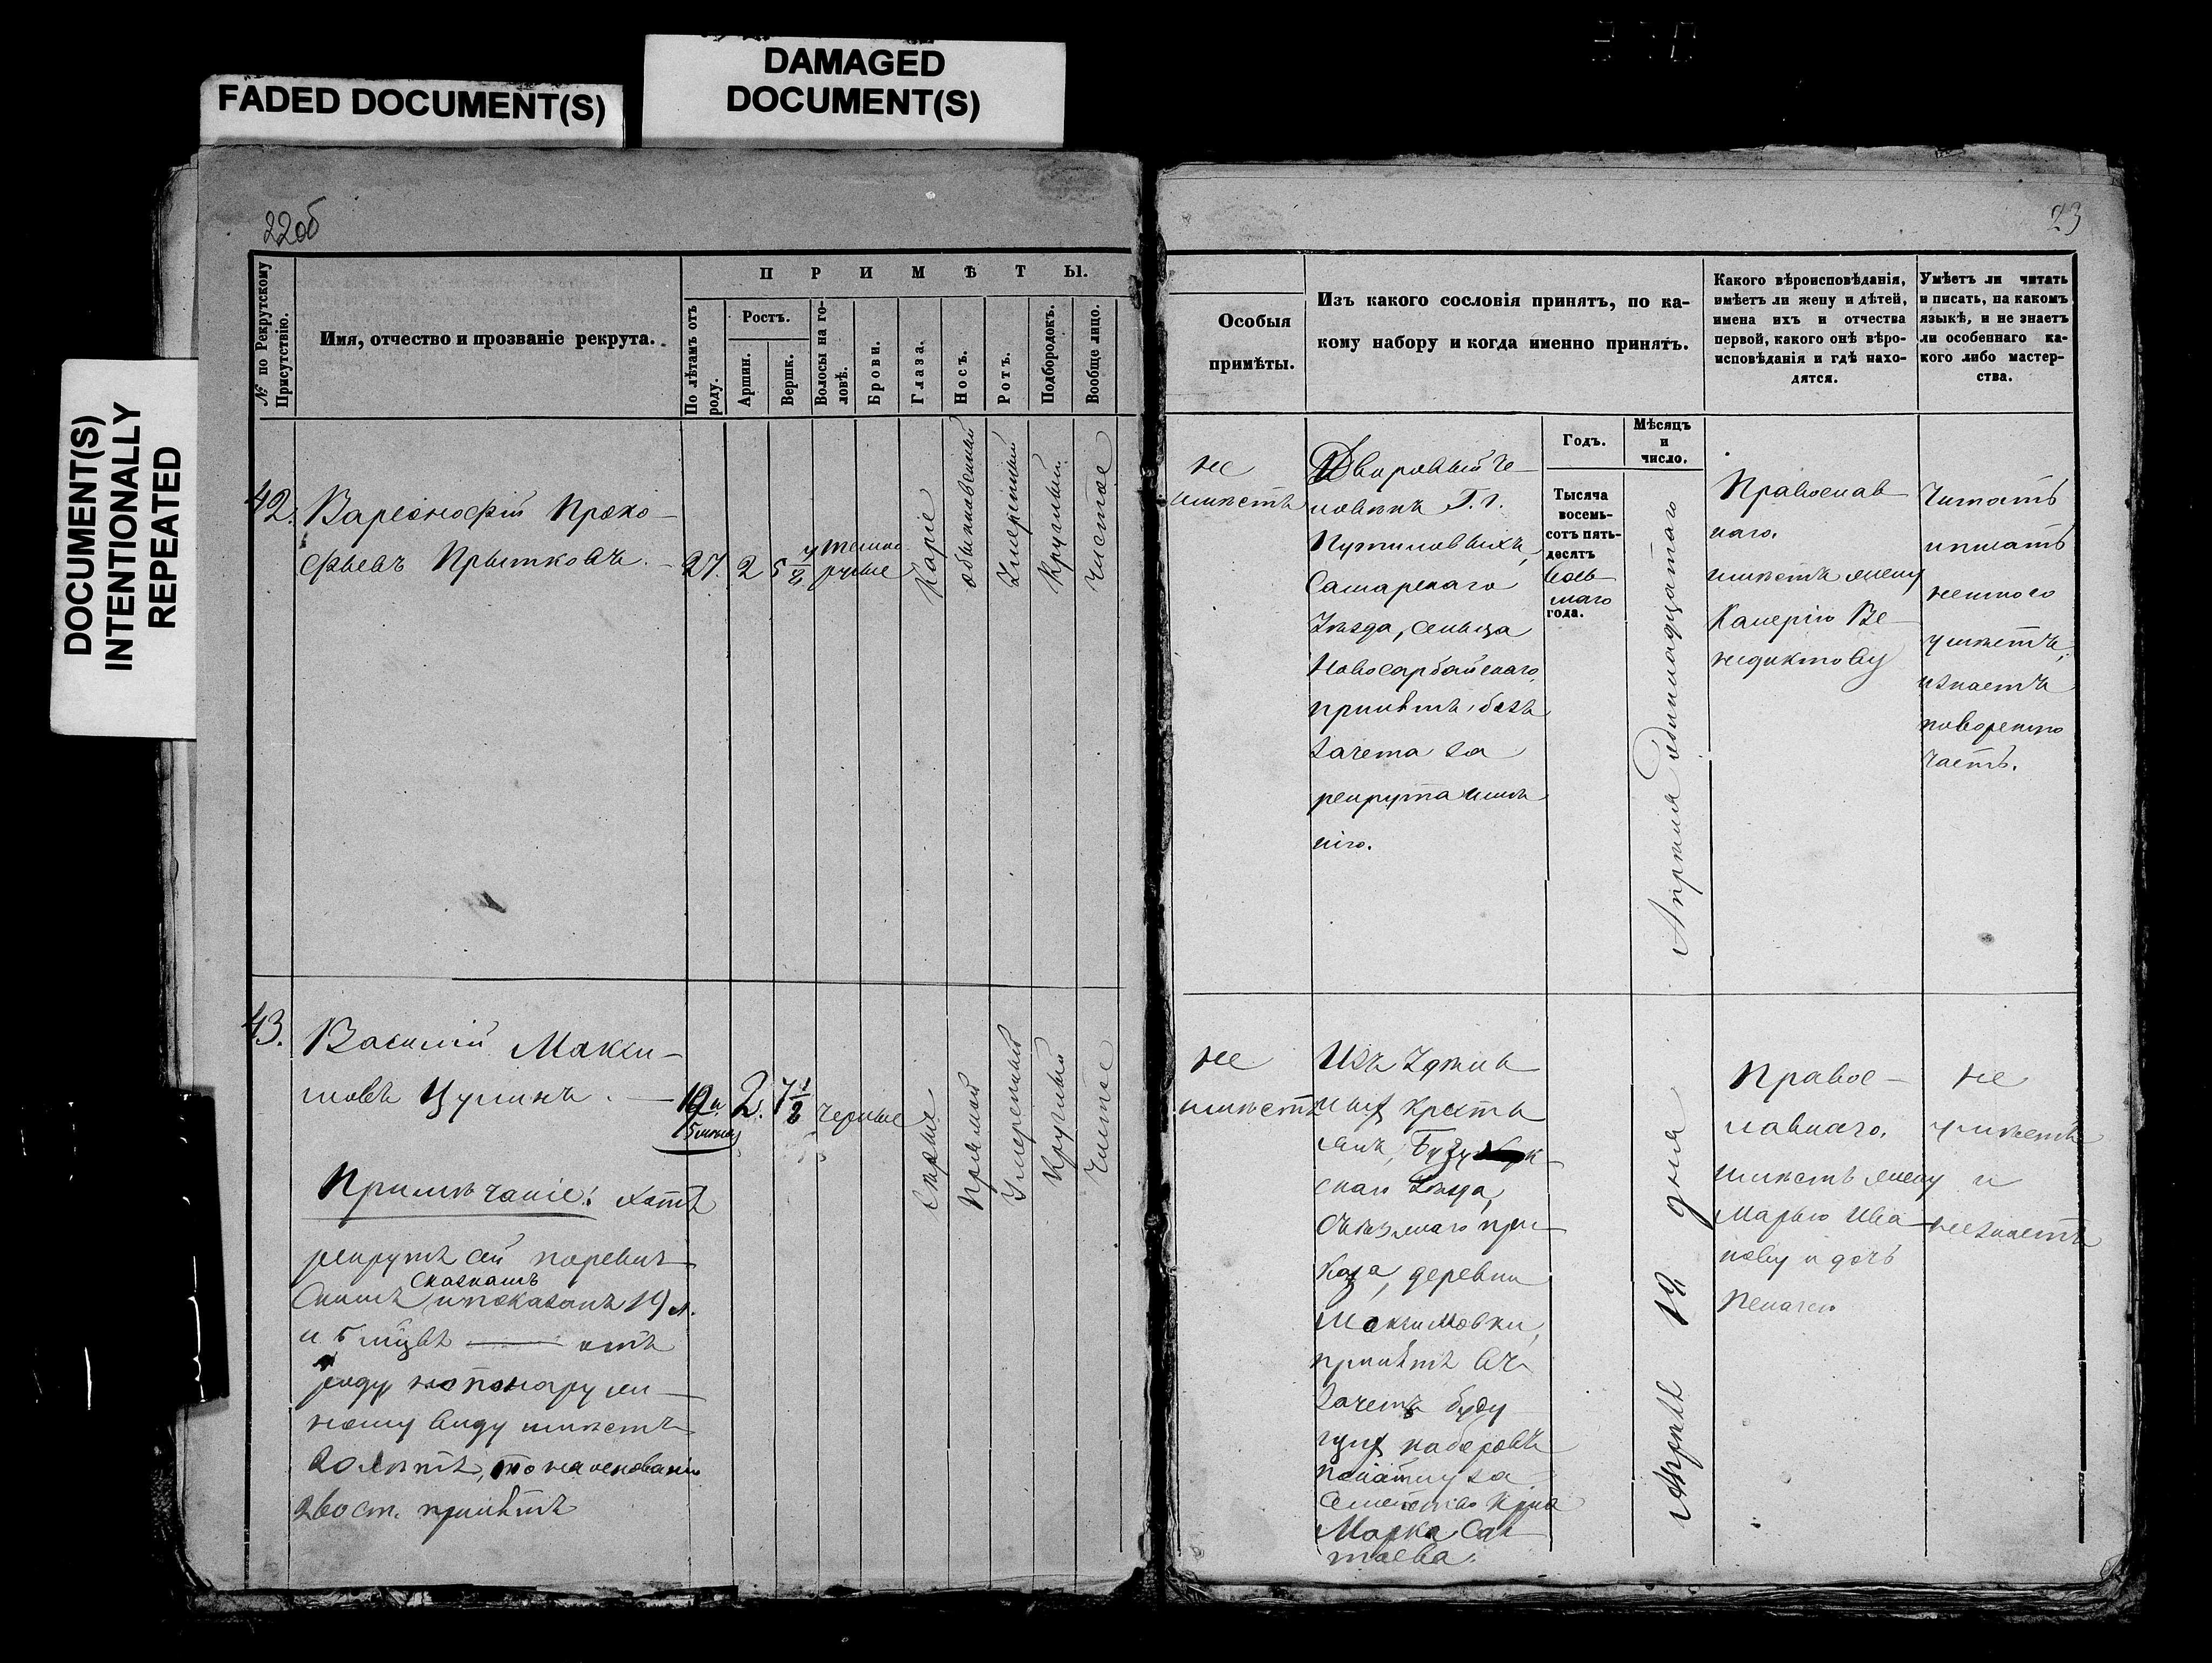 FADED DOCUMENT(S)
DAMAGED
DOCUMENT(S)
DOCUMENT(S)
INTENTIONALLY
REPEATED
22об
№ по Рекрутскому
Присутствію.
Имя, отчество и прозваніе рекрута.
П Р И М Ѣ Т Ы.
По лѣтамъ отъ
роду.
Ростъ.
Аршин.
Вершк.
Волосы на го-
ловѣ.
Брови.
Глаза.
Носъ.
Ротъ.
Подбородокъ.
Вообще лицо.
42.
Варсонофій Проко-
фьевъ Прытковъ.
27.
2
5 1/2
темно-
русые
Каріе
обыкновенный
Умеренный
Круглый
Чистое
43.
Василій Макси-
мовъ Цулинъ.
19 и
5 мѣсяц
2.
7 1/2
черные
Сѣрые
Прямой
Умеренный
Круглый
Чистое
Примѣчаніе: хотя
рекрутъ сей по ревиж
Сказкамъ
и показанъ 19 л.
и 5 мцвъ — отъ
роду но по наруж-
ному виду имѣетъ
20 лѣтъ, то на основаніи
260 ст. принятъ
23
Особыя
примѣты.
Изъ какого сословія принятъ, по ка-
кому набору и когда именно принятъ.
Какого вѣроисповѣданія,
имѣетъ ли жену и дѣтей,
имена ихъ и отчества
первой, какого онѣ вѣро-
исповѣданія и гдѣ нахо-
дятся.
Умѣетъ ли читать
и писать, на какомъ
языкѣ, и не знаетъ
ли особеннаго ка-
кого либо мастер-
ства.
не
имѣетъ
Дворовый че-
ловекъ Г.г.
Путиловыхъ,
Самарскаго
Уѣзда, сельца
Новосарбайскаго,
принятъ безъ
зачета за
рекрута имѣ
ніго.
Годъ.
Тысяча
восемь-
сотъ пять-
десятъ
Сель-
маго
года.
Мѣсяцъ
и
число.
Апреля Одинадцатаго
Православ-
наго.
имѣетъ жену
Калерію Ве-
недиктову
Читать
и писать
немного
умѣетъ,
и знаетъ
поворенную
часть.
не
имѣетъ
Изъ Удѣль
ныхъ кресть
янъ, Бузулук-
скаго Уѣзда,
Съѣзжаго при-
каза, деревни
Максимовки,
принятъ въ
зачетъ буду
щихъ наборовъ
семейства
Марка Сав
таева.
Апрѣля 12 дня
Правос-
лавнаго.
имѣетъ жену
Марью Ива
нову и дочь
Пелагею
не
умѣетъ
и
не знаетъ